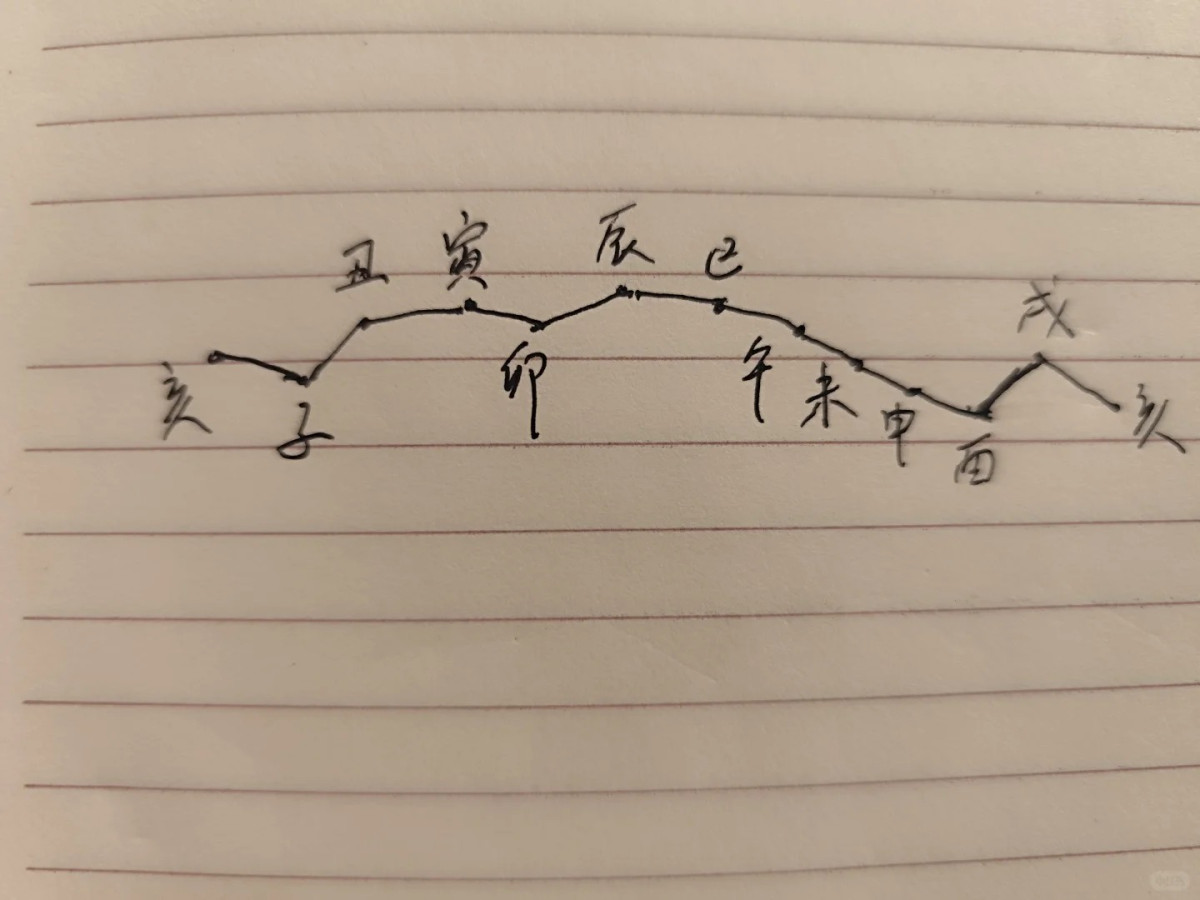 亥 子 丑 寅 卯 辰 巳 午 未 申 酉 戌 亥